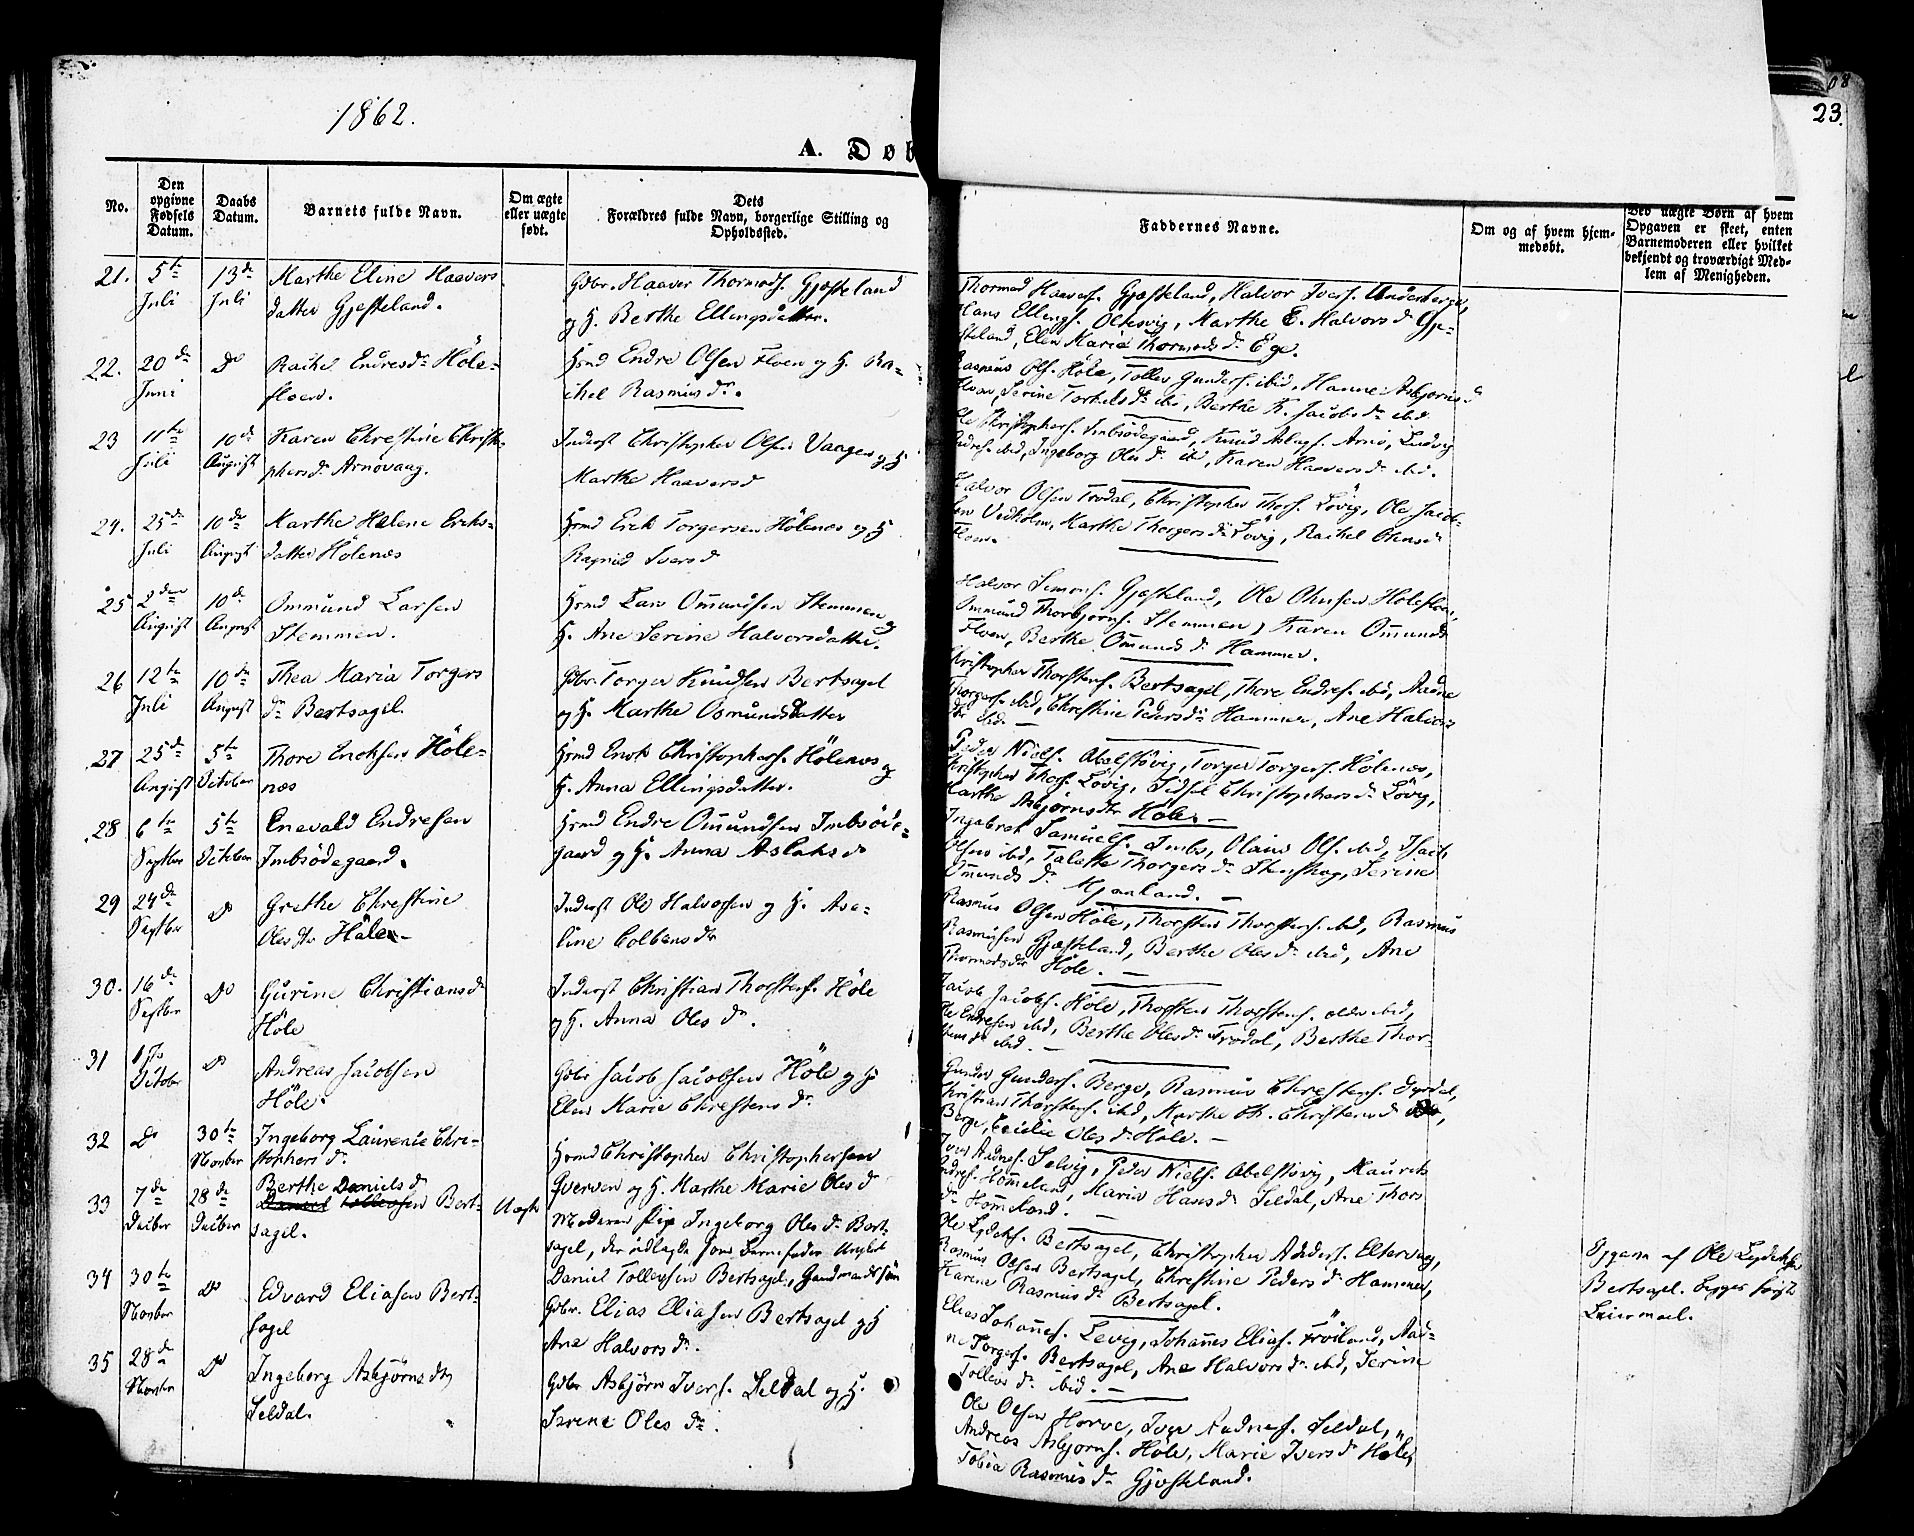 23.
1862.
A. Døb
No.
Den opgivne Fødsels Datum.
Daabs Datum.
Barnets fulde Navn.
Om ægte eller uægte født.
Dets Forældres fulde Navn, borgerlige Stilling og Opholdssted.
Faddernes Navne.
Om og af hvem hjemmedøbt.
Ved uægte Børn af hvem Opgaven er skeet, enten Barnemoderen eller hvilket bekjendt og troværdigt Medlem af Menigheden.
21. 5te Juli 13de Juli
Marthe Eline Haavers
datter Gjesteland.
Gdbr. Haaver Thormods. Gjesteland
og H. Berthe Ellingsdatter.
Thormod Haavers. Gjesteland, Halvor Ivers.
Hans Ellings. Oltesvig, Marthe E. Halvorsd Gje-
steland, Elen Maria Thormodsdr Ege.
22. 20de Juni Do
Rachel Endresdr Höle-
floen.
Hsmd Endre Olsen Floen og H. Ra-
chel Rasmusdr.
Rasmus Ols. Höle, Tollev Gunders. ibid, Hanne Asbjørnsd
Floen, Serine Torkelsdr ibid, Berthe K. Jacobsdr ibid
23 11te Juli 10de August
Karen Chrestine Christo-
phersdr Arnøvaag.
Inderst Christopher Olsen Vaagen og H
Marthe Haaversd
Ole Christophers. Imbsödegaard, Knud Aslags. Arnø, Ludvig
Endres. ibid, Ingeborg Olesdr ibid, Karen Haaversdr ibid.
24. 25de Juli 10de August
Marthe Helene Eriks-
datter Hölenæs
Hsmd Erik Torgersen Hölenæs og H
Ragnild Iversd
Halvor Olsen Trodal, Christopher Thors. Lövig, Ole Jacob-
sen Vedholm, Marthe Thorgersdr Lövig, Rachel Olensdr
Floen.
25 2den August 10de August
Ommund Larsen
Stemmen.
Hsmd Lars Omundsen Stemmen og
H. Ane Serine Halvorsdatter.
Halvor Simons. Gjesteland, Ole Olusen Holefloen,
Ommund Thorbjørns. Stemmen, Karen Omundsd
Floen, Berthe Omundsdr Hammer.
26 12te Juli 10de August
Thea Maria Torgers
dr Bertsagel.
Gdbr. Torger Knudsen Bertsagel
og H. Marthe Osmundsdatter
Christopher Thorstens. Bertsagel, Thore Endres. ibid, Aadne
Thorgers. ibid, Chrestine Pedersdr Hammer, Ane Halvors
dtr ibid. —
27 25de August 5te October
Thore Ericksen Höle-
næs
Hsmd Erick Christophers. Hölenæs og
H. Anna Ellingsdatter.
Peder Niels. Abelstövig, Torger Torgers. Hölenæs,
Christopher Thors. Lövig, Sidsel Christophersdr Lövig,
Marthe Asbjørnsdtr Höle. —
28 6te Septbr 5te October
Enevald Endresen
Imbsödegaard.
Hsmd Endre Omundsen Imbsöde-
gaard og H. Anna Aslaksd
Ingebret Samuels. Imbs, Olaus Ols. ibid, Isack
Olsen ibid, Talette Thorgersdr Stenskog, Serine
Omundsdr Mjaaland. —
29 24de Septbr Do
Grethe Chrestine
Olesdtr Höle —
Inderst Ole Halvorsen og H. Ase-
line Colbensdr
Rasmus Olsen Höle, Thorsten Thorstens. ibid, Rasmus
Rasmusen Gjesteland, Berthe Olesdr ibid, Ane
Thormodsdtr Höle. —
30. 16de Septbr Do
Gurine Christiansdr
Höle
Inderst Christian Thorstens. Höle
og H. Anna Olesdr.
Jacob Jacobs. Höle, Thorsten Thorstens. ældre ibid,
Ole Endresen ibid, Berthe Olesdr Trodal, Berthe Thor-
stensdr ibid. —
31 1ste October Do
Andreas Jacobsen
Höle.
Gdbr Jacob Jacobsen Höle og H
Elen Marie Chrestensdr
Gunder Gunders. Berge, Rasmus Chrestens. Dyrdal,
Christian Thorstens. ibid, Marthe M. Christensd Do,
Berge, Cecilie Olesdr Höle. —
32 Do 30te Novbr
Ingeborg Laurenie Chri-
stophersdr
Hsmd Christopher Christophersen
Qverven og H. Marthe Marie Olesd
Iver Aadnes. Selvig, Peder Niels. Abelstövig, Maurits
Endres. Hommeland, Maria Hansdr Seldal, Ane Thors
dr Hommeland.
33 7de Decbr 28de Decbr
Berthe Danielsd
Daniel Tollevsen Bert-
sagel.
Uægte
Moderen Pige Ingeborg Olesdr Bert-
sagel, der udlagde som Barnefader Ungkarl
Daniel Tollevsen Bertsagel, Gaardmandssøn
Ole Lydeks. Bertsagel, Christopher Anders. Eltervaag,
Rasmus Olsen Bertsagel, Chrestine Pedersdr Hammer,
Karine Rasmusdr Bertsagel.
Opgivn af Ole Lydeksen
Bertsagel. begges første
Leiermaal.
34 30te Novbr Do
Edvard Eliasen Bert-
sagel
Gdbr. Elias Eliasen Bertsagel og H
Ane Halvorsdr.
Elias Johannes. Levig, Johannes Elias. Tröiland, Aad-
ne Torgers. Bertsagel, Ane Halvorsdr ibid, Serine
Tollevsdr ibid. —
35 28de Novbr Do
Ingeborg Asbjørnsdtr
Seldal.
Gdbr Asbjørn Ivers. Seldal og H.
Serene Olesdr.
Ole Olsen Horve, Iver Aadnes. Seldal,
Andreas Asbjørns. Höle, Marie Iversdr Höle,
Tobia Rasmusdr Gjesteland.